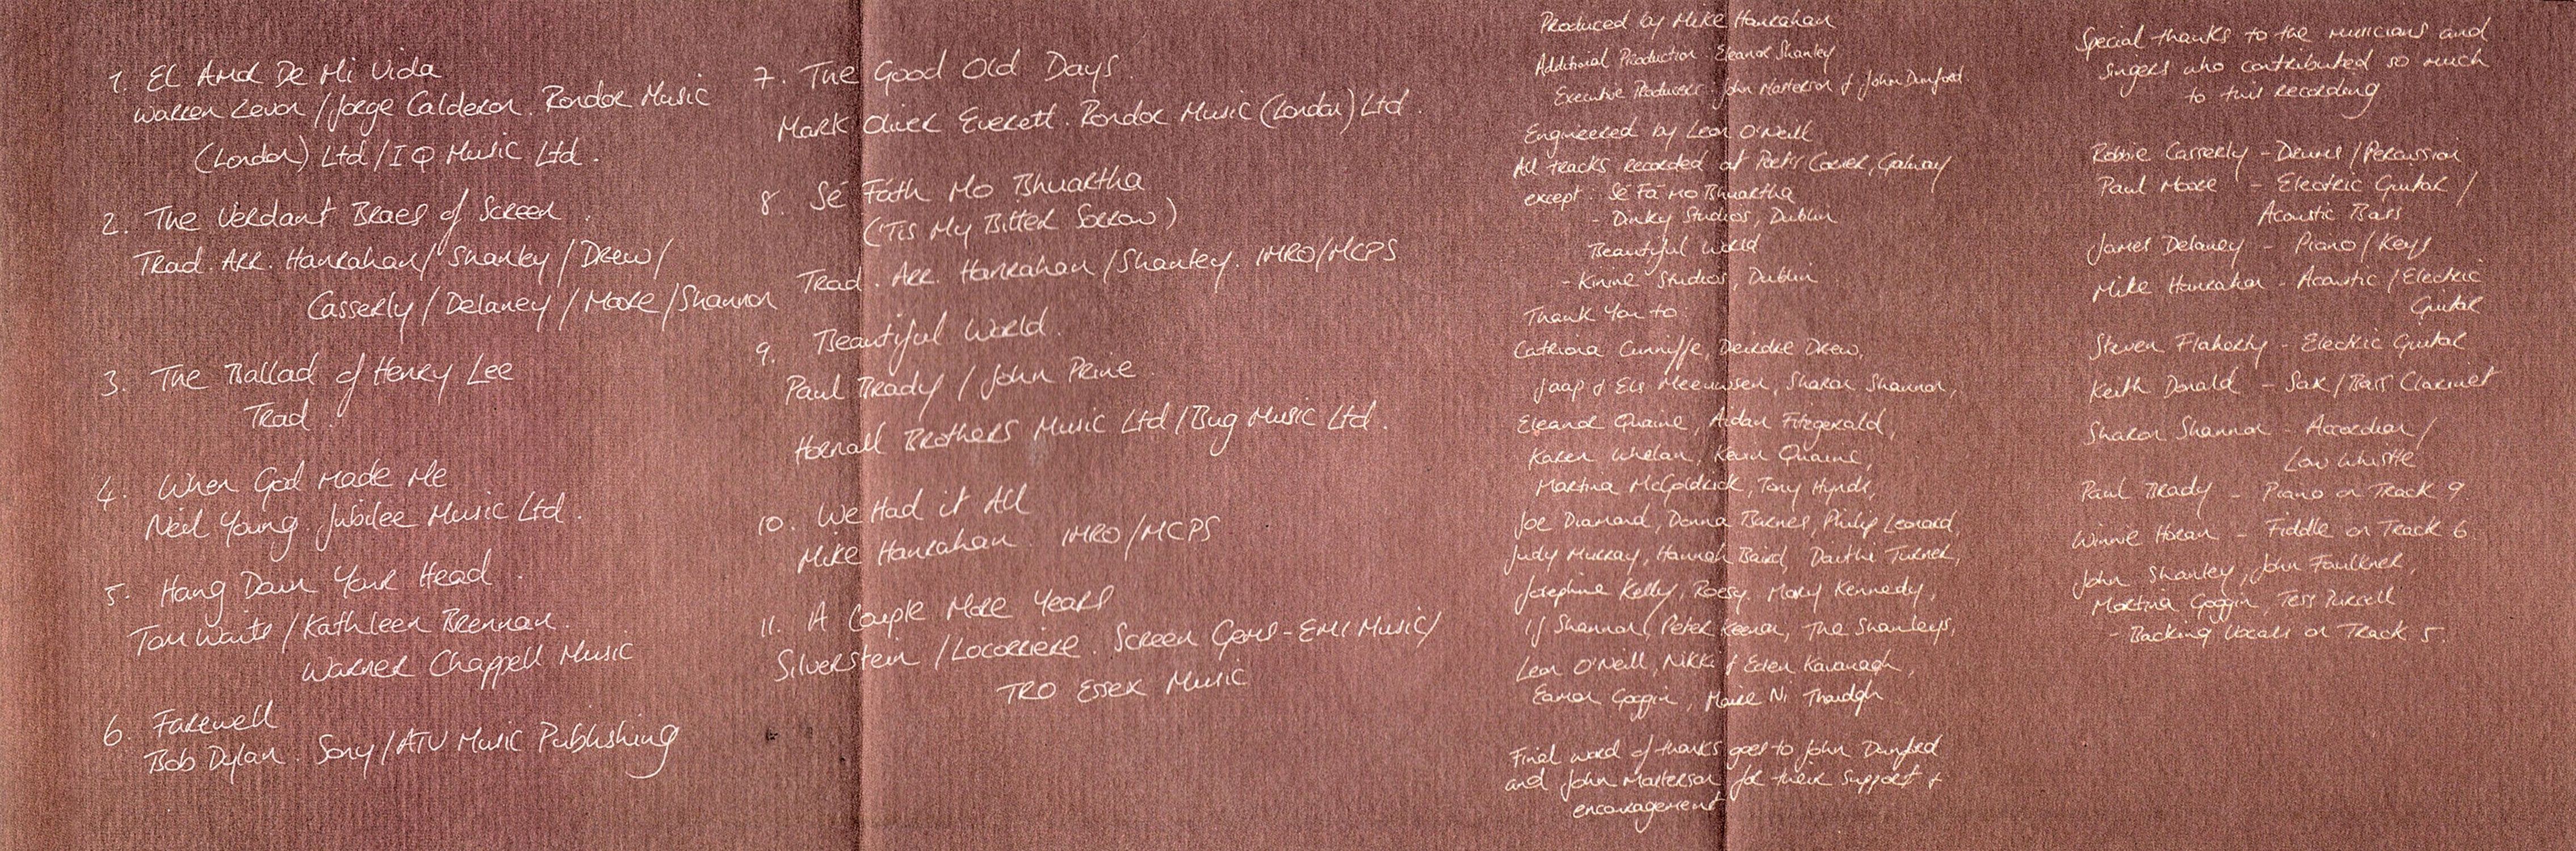 1. El Amor De Mi Vida
Warren Zevon / Jorge Calderon. Rondor Music
(London) Ltd / IQ Music Ltd.
2. The Verdant Braes of Screen.
Trad. Arr. Hanrahan / Shanley / Drew /
Casserly / Delaney / Moore / Shannon
3. The Ballad of Henry Lee
Trad.
4. When God Made Me
Neil Young. Jubilee Music Ltd.
5. Hang Down Your Head.
Tom Waits / Kathleen Brennan.
Warner Chappell Music
6. Farewell
Bob Dylan. Sony / ATV Music Publishing
7. The Good Old Days
Mark Oliver Everett. Rondor Music (London) Ltd.
8. Sé Fáth Mo Bhuartha
('Tis My Bitter Sorrow)
Trad. Arr. Hanrahan / Shanley. IMRO/MCPS
9. Beautiful World.
Paul Brady / John Prine.
Hornall Brothers Music Ltd / Bug Music Ltd.
10. We Had it All
Mike Hanrahan. IMRO/MCPS
11. A Couple More Years
Silverstein / Locorriere. Screen Gems-EMI Music /
TRO Essex Music
Produced by Mike Hanrahan
Additional Production Eleanor Shanley
Executive Producers John Masterson & John Dunford
Engineered by Leon O'Neill
All tracks recorded at Poet's Corner, Galway
except: Sé Fá Mo Bhuartha
- Dinky Studios, Dublin
Beautiful World
- Kinine Studios, Dublin
Thank You to:
Catriona Cunniffe, Deirdre Drew,
Jaap & Els Meeuwsen, Sharon Shannon,
Eleanor Quaine, Aidan Fitzgerald,
Karen Whelan, Kevin Quaine,
Martina McGoldrick, Tony Hynds,
Joe Diamond, Donna Barnes, Philip Leonard,
Judy Murray, Hannah Baird, Daithe Turner,
Josephine Kelly, Roesy, Mary Kennedy,
IJ Shannon, Peter Keenan, The Shanleys,
Leon O'Neill, Nikki & Eden Kavanagh,
Eamon Goggin, Maire Ni
Final word of thanks goes to John Dunford
and John Masterson for their support &
encouragement
Special thanks to the musicians and
singers who contributed so much
to this recording
Robbie Casserly - Drums / Percussion
Paul Moore - Electric Guitar /
Acoustic Bass
James Delaney - Piano / Keys
Mike Hanrahan - Acoustic / Electric
Guitar
Steven Flaherty - Electric Guitar
Keith Donald - Sax / Bass Clarinet
Sharon Shannon - Accordian /
Low Whistle
Paul Brady - Piano on Track 9.
Winnie Horan - Fiddle on Track 6
John Shanley, John Faulkner,
Martina Goggin, Tess Purcell
- Backing Vocals on Track 5.